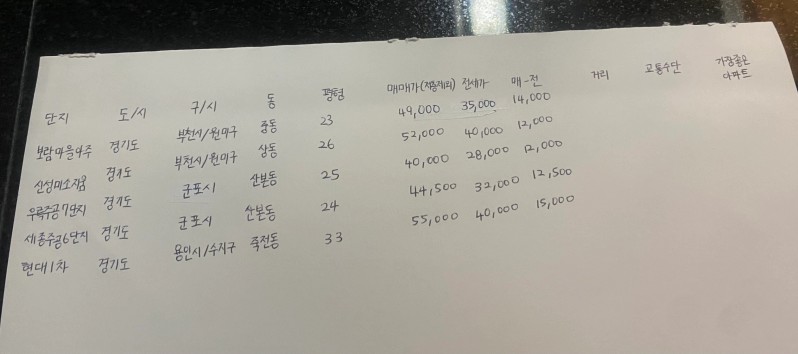 단지 도/시 구/시 동 평형 매매가(저층제외) 전세가 매-전 거리 교통수단 가장좋은 아파트
보람마을아주 경기도 부천시/원미구 중동 23 49,000 35,000 14,000
신성미소지움 경기도 부천시/원미구 상동 26 52,000 40,000 12,000
우륵주공7단지 경기도 군포시 산본동 25 40,000 28,000 12,000
세종주공6단지 경기도 군포시 산본동 24 44,500 32,000 12,500
현대1차 경기도 용인시/수지구 죽전동 33 55,000 40,000 15,000